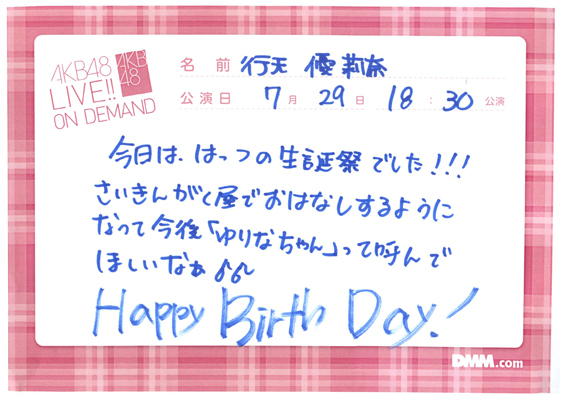 AKB48
LIVE!!
ON DEMAND
AKB
48
名 前 行天 優莉奈
公演日 7 月 29 日 18 : 30 公演
今日は、はっつの生誕祭でした!!!
さいきんがく屋でおはなしするように
なって今後「ゆりなちゃん」って呼んで
ほしいなぁ♪♪
Happy Birth Day!
DMM.com